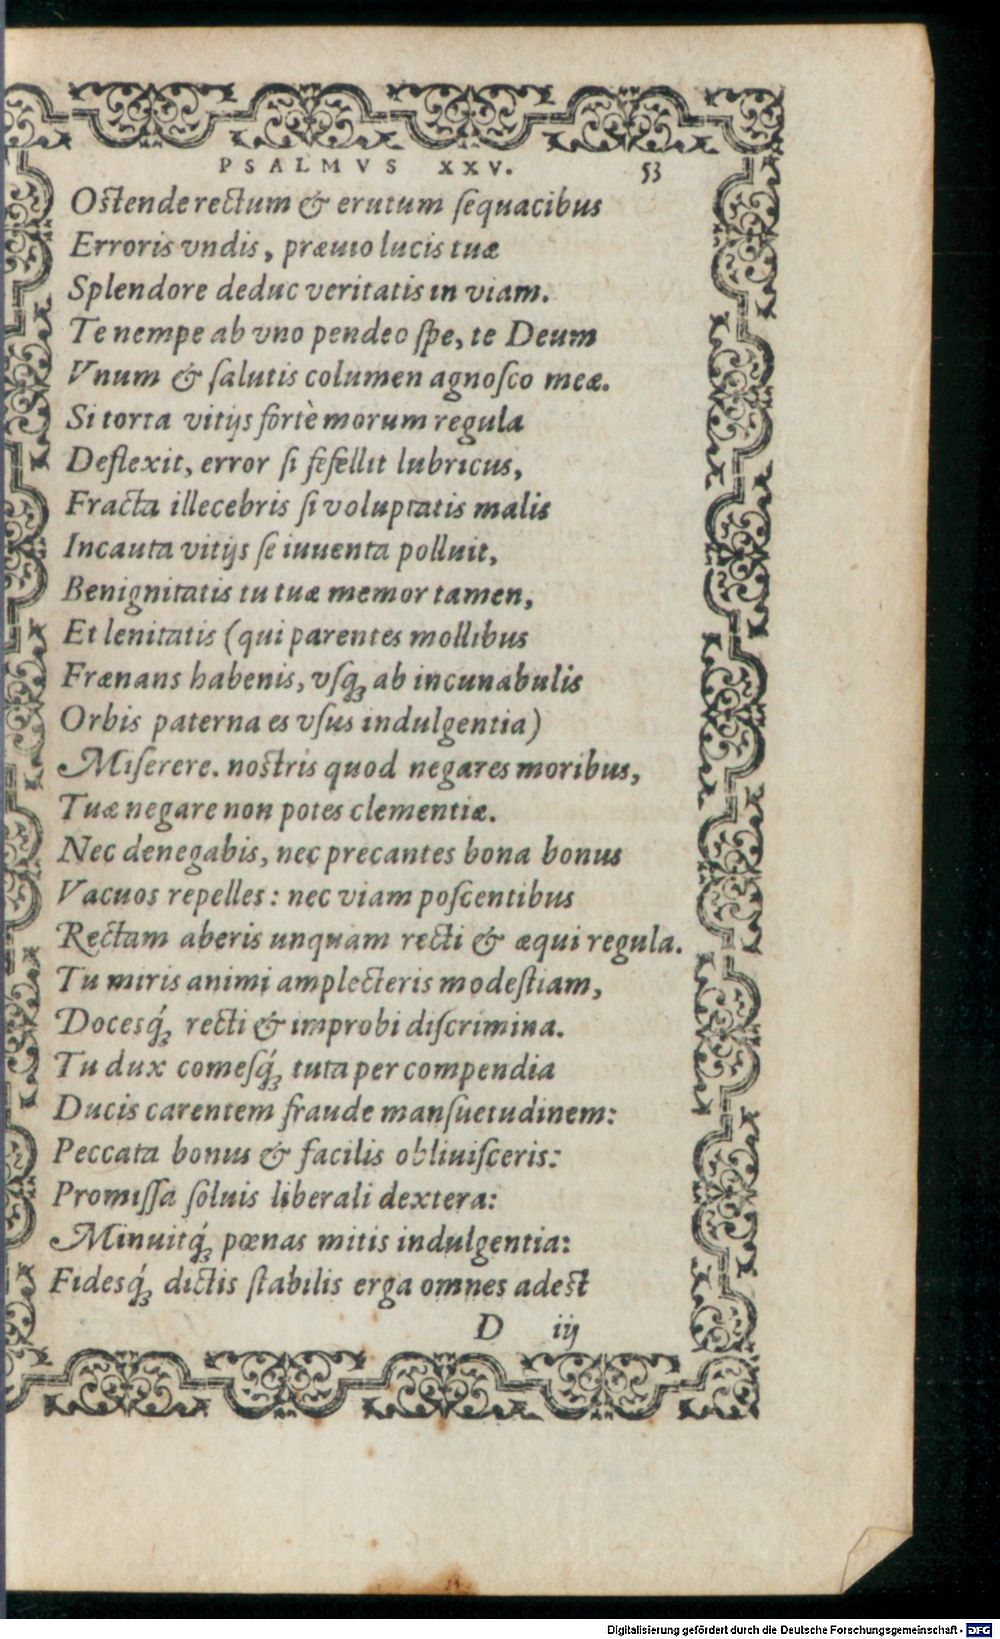 PSALMVS XXV. 53
Ostende rectum & erutum ſequacibus
Erroris vndis, præuio lucis tuæ
Splendore deduc veritatis in viam.
Te nempe ab vno pendeo ſpe, te Deum
Vnum & ſalutis columen agnoſco meæ.
Si torta vitijs fortè morum regula
Deflexit, error ſi fefellit lubricus,
Fracta illecebris ſi voluptatis malis
Incauta vitijs ſe iuuenta polluit,
Benignitatis tu tuæ memor tamen,
Et lenitatis (qui parentes mollibus
Frænans habenis, vſq; ab incunabulis
Orbis paterna es vſus indulgentia)
Miſerere. nostris quod negares moribus,
Tuæ negare non potes clementiæ.
Nec denegabis, nec precantes bona bonus
Vacuos repelles: nec viam poſcentibus
Rectam aberis unquam recti & æqui regula.
Tu miris animi amplecteris modeſtiam,
Docesq́; recti & improbi diſcrimina.
Tu dux comeſq́; tuta per compendia
Ducis carentem fraude manſuetudinem:
Peccata bonus & facilis obliuiſceris:
Promiſſa ſoluis liberali dextera:
Minuitq́; pœnas mitis indulgentia:
Fidesq́; dictis ſtabilis erga omnes adest
D iij
Digitalisierung gefördert durch die Deutsche Forschungsgemeinschaft - DFG